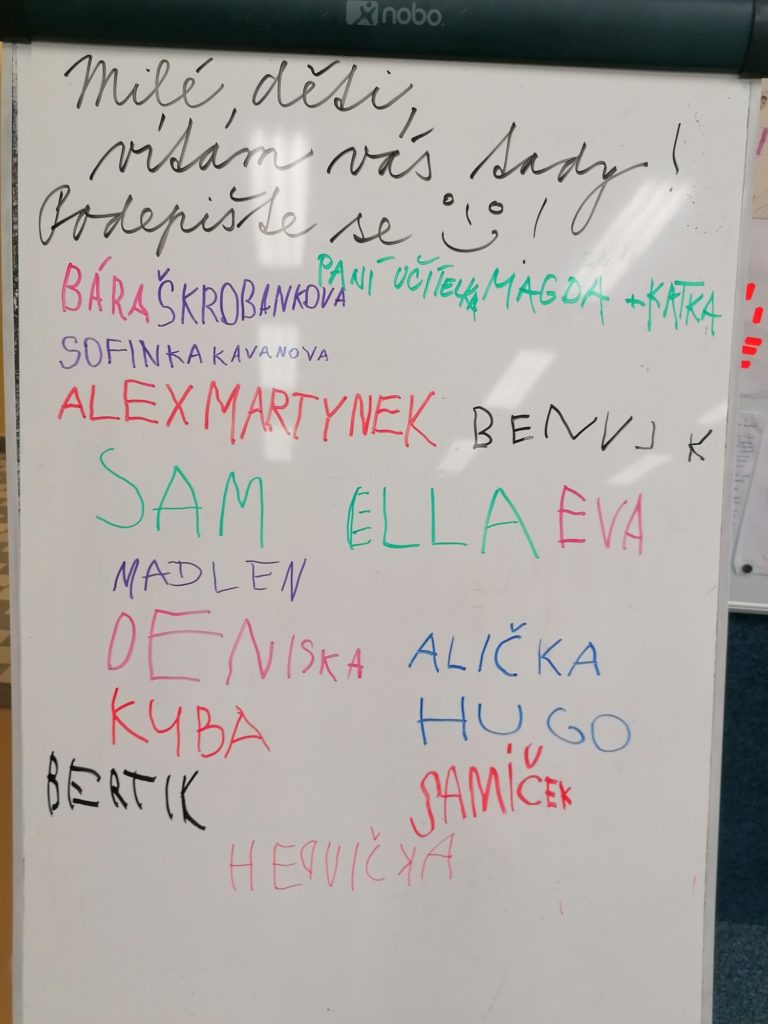 nobo
Milé děti,
vítám vás tady!
Podepište se !
BÁRA ŠKROBANKOVA PANÍ UČITELKA MAGDA + KATKA
SOFINKA KAVANOVA
ALEX MARTYNEK BENVJK
SAM ELLA EVA
MADLEN
DENISKA ALIČKA
KYBA HUGO
BERTIK SAMÍČEK